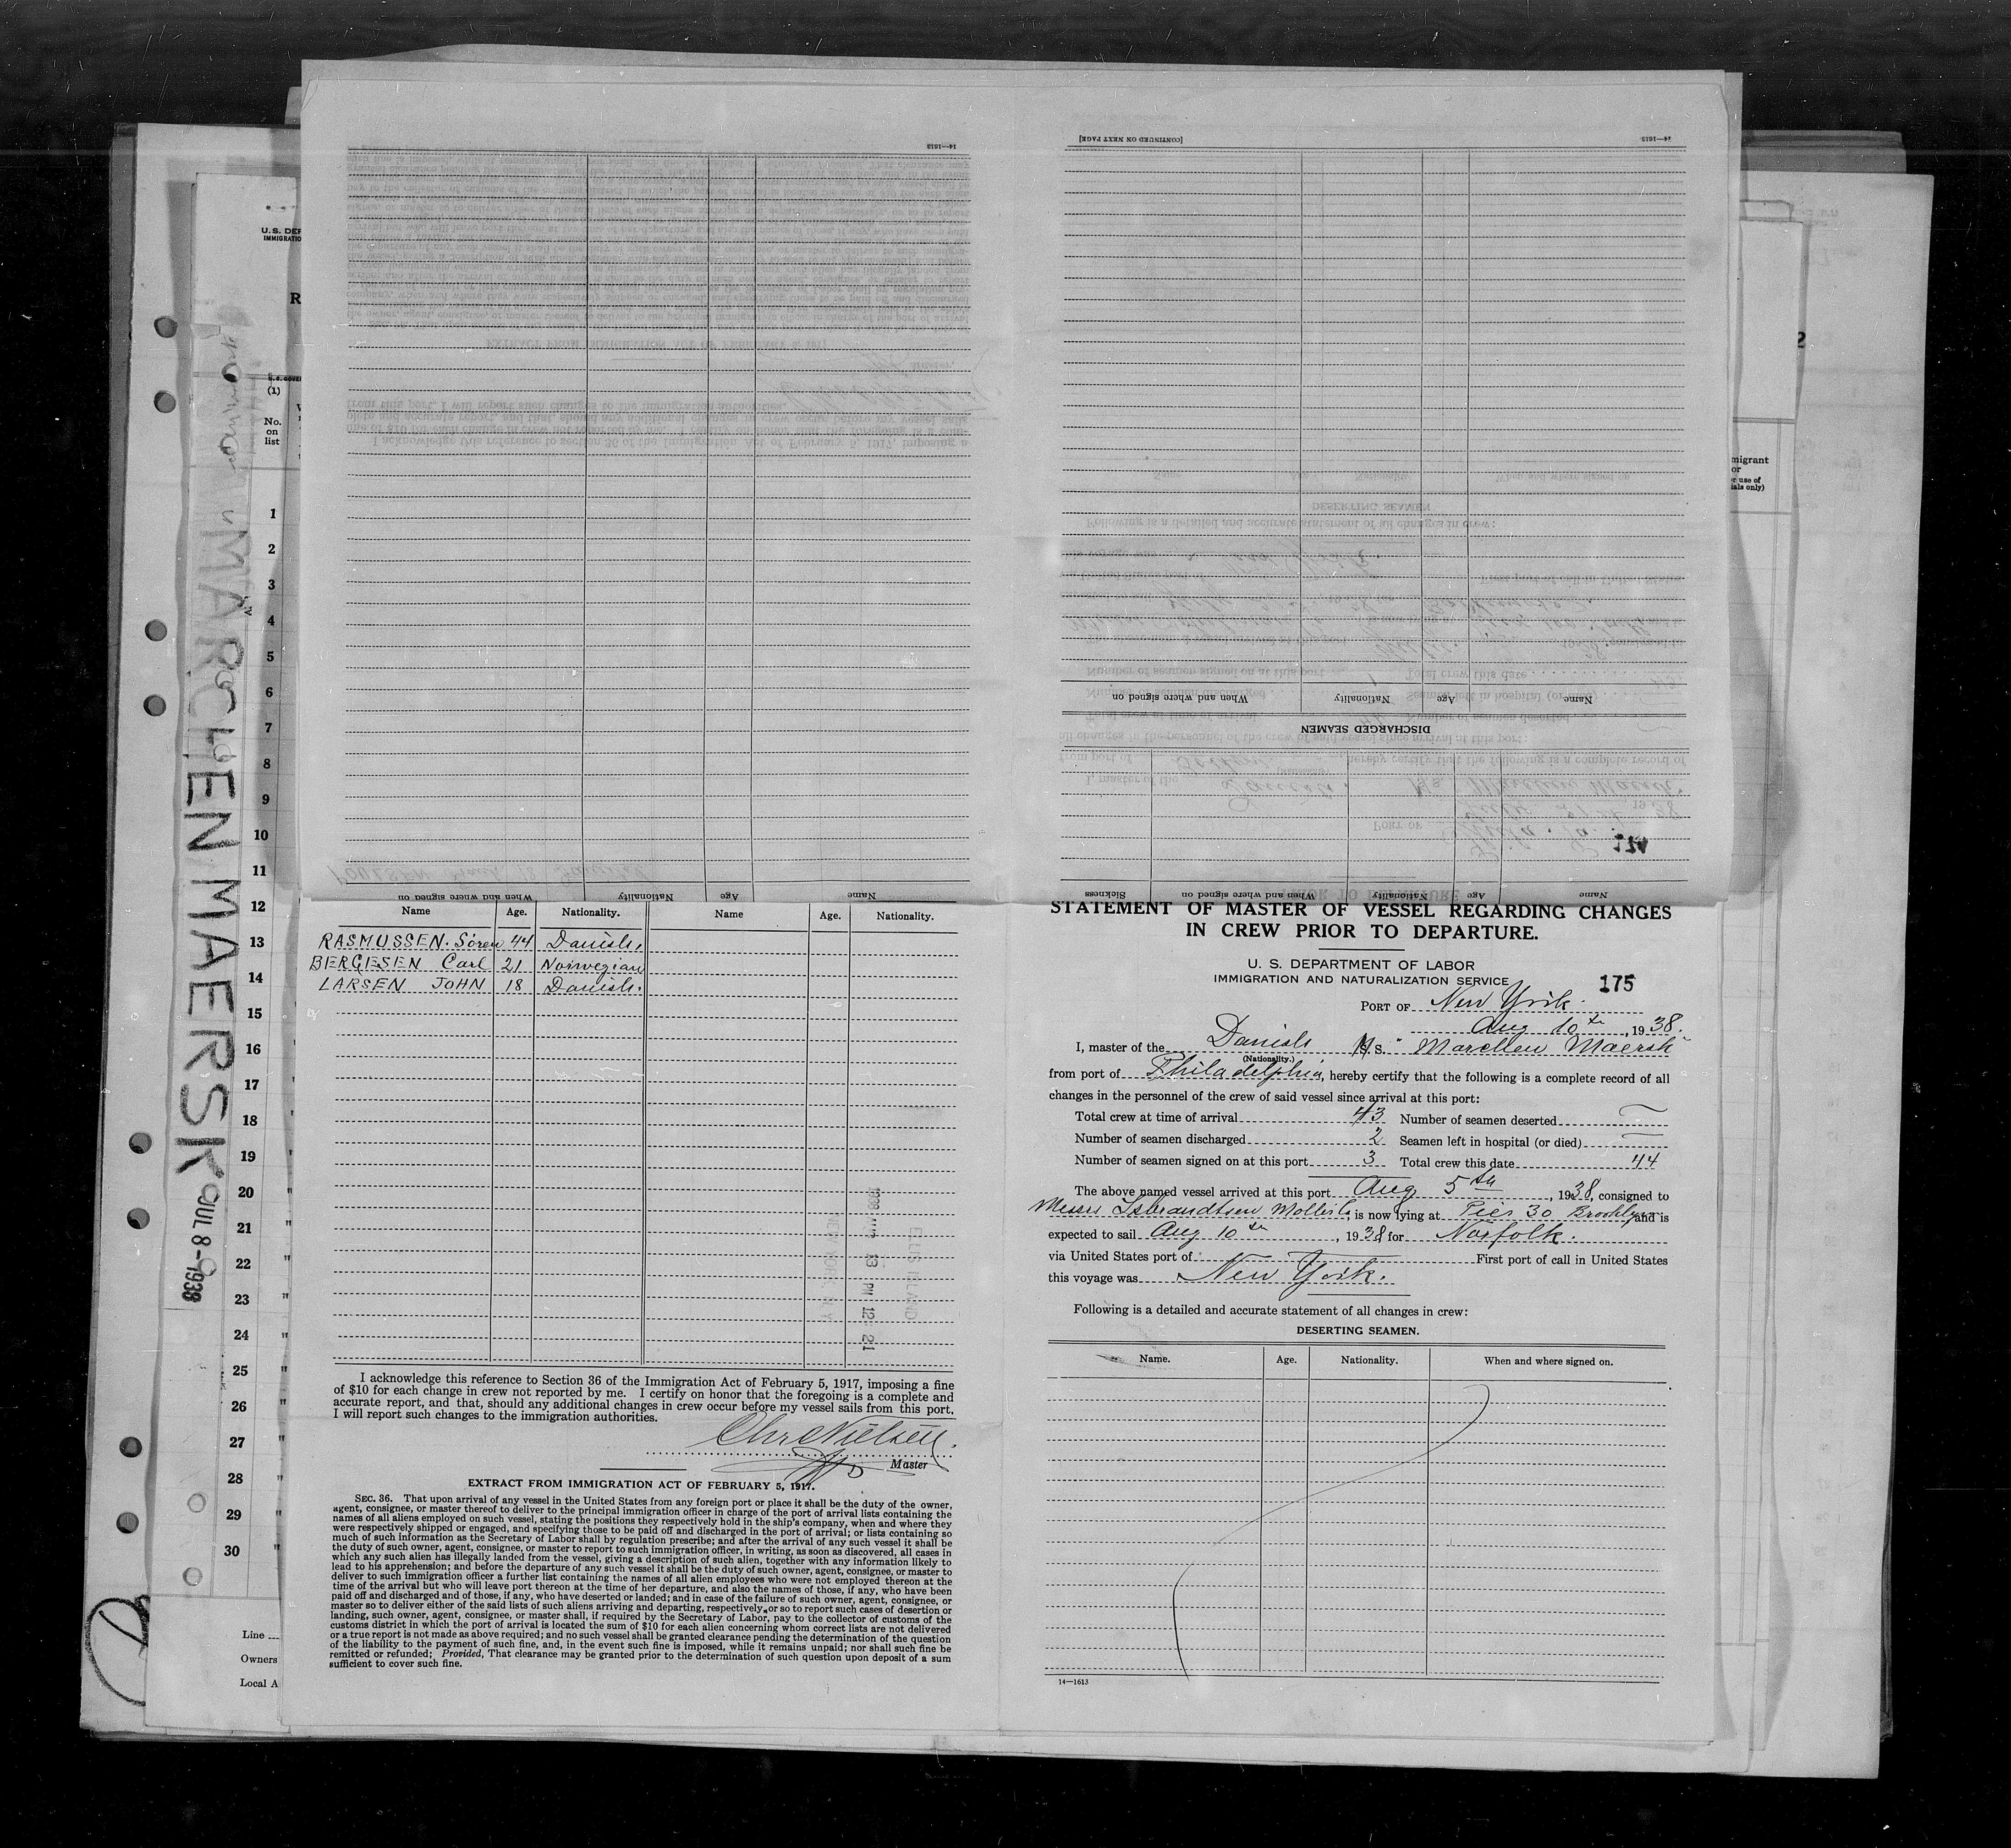 14—1613
[CONTINUED ON NEXT PAGE]
14—1613
Name
Age
Nationality
When and where signed on
DISCHARGED SEAMEN
Name
Age
Nationality
When and where signed on
Name
Age
Nationality
When and where signed on
Sickness
174
U.S. DE
IMMIGRATIO
R
(1)
No.
on
list
1
2
3
4
5
6
7
8
9
10
11
12
13
14
15
16
17
18
19
20
21
22
23
24
25
26
27
28
29
30
Line
Owners
Local A
MARCHEN MAERSK
JUL 8-1938
migrant
or
r use of
ials only)
Name Age. Nationality. Name Age. Nationality.
RASMUSSEN. Sören 44 Danish.
BERGESEN Carl 21 Norwegian
LARSEN JOHN 18 Danish.
1938 AUG 13 PM 12 21
ELLIS ISLAND
I acknowledge this reference to Section 36 of the Immigration Act of February 5, 1917, imposing a fine
of $10 for each change in crew not reported by me. I certify on honor that the foregoing is a complete and
accurate report, and that, should any additional changes in crew occur before my vessel sails from this port,
I will report such changes to the immigration authorities.
Chr Nielsen.
Master
EXTRACT FROM IMMIGRATION ACT OF FEBRUARY 5, 1917.
SEC. 36. That upon arrival of any vessel in the United States from any foreign port or place it shall be the duty of the owner,
agent, consignee, or master thereof to deliver to the principal immigration officer in charge of the port of arrival lists containing the
names of all aliens employed on such vessel, stating the positions they respectively hold in the ship's company, when and where they
were respectively shipped or engaged, and specifying those to be paid off and discharged in the port of arrival; or lists containing so
much of such information as the Secretary of Labor shall by regulation prescribe; and after the arrival of any such vessel it shall be
the duty of such owner, agent, consignee, or master to report to such immigration officer, in writing, as soon as discovered, all cases in
which any such alien has illegally landed from the vessel, giving a description of such alien, together with any information likely to
lead to his apprehension; and before the departure of any such vessel it shall be the duty of such owner, agent, consignee, or master to
deliver to such immigration officer a further list containing the names of all alien employees who were not employed thereon at the
time of the arrival but who will leave port thereon at the time of her departure, and also the names of those, if any, who have been
paid off and discharged and of those, if any, who have deserted or landed; and in case of the failure of such owner, agent, consignee, or
master so to deliver either of the said lists of such aliens arriving and departing, respectively, or so to report such cases of desertion or
landing, such owner, agent, consignee, or master shall, if required by the Secretary of Labor, pay to the collector of customs of the
customs district in which the port of arrival is located the sum of $10 for each alien concerning whom correct lists are not delivered
or a true report is not made as above required; and no such vessel shall be granted clearance pending the determination of the question
of the liability to the payment of such fine, and, in the event such fine is imposed, while it remains unpaid; nor shall such fine be
remitted or refunded; Provided, That clearance may be granted prior to the determination of such question upon deposit of a sum
sufficient to cover such fine.
STATEMENT OF MASTER OF VESSEL REGARDING CHANGES
IN CREW PRIOR TO DEPARTURE.
U. S. DEPARTMENT OF LABOR
IMMIGRATION AND NATURALIZATION SERVICE
175
PORT OF New York.
Aug 10th, 1938.
I, master of the Danish M.S. "Marchen Maersk"
(Nationality.)
from port of Philadelphia, hereby certify that the following is a complete record of all
changes in the personnel of the crew of said vessel since arrival at this port:
Total crew at time of arrival 43 Number of seamen deserted —
Number of seamen discharged 2 Seamen left in hospital (or died) —
Number of seamen signed on at this port 3 Total crew this date 44
The above named vessel arrived at this port Aug 5th, 1938, consigned to
Messrs Isbrandtsen Moller Co, is now lying at Pier 30 Brooklyn and is
expected to sail Aug 10th, 1938 for Norfolk.
via United States port of First port of call in United States
this voyage was New York.
Following is a detailed and accurate statement of all changes in crew:
DESERTING SEAMEN.
Name. Age. Nationality. When and where signed on.
14—1613